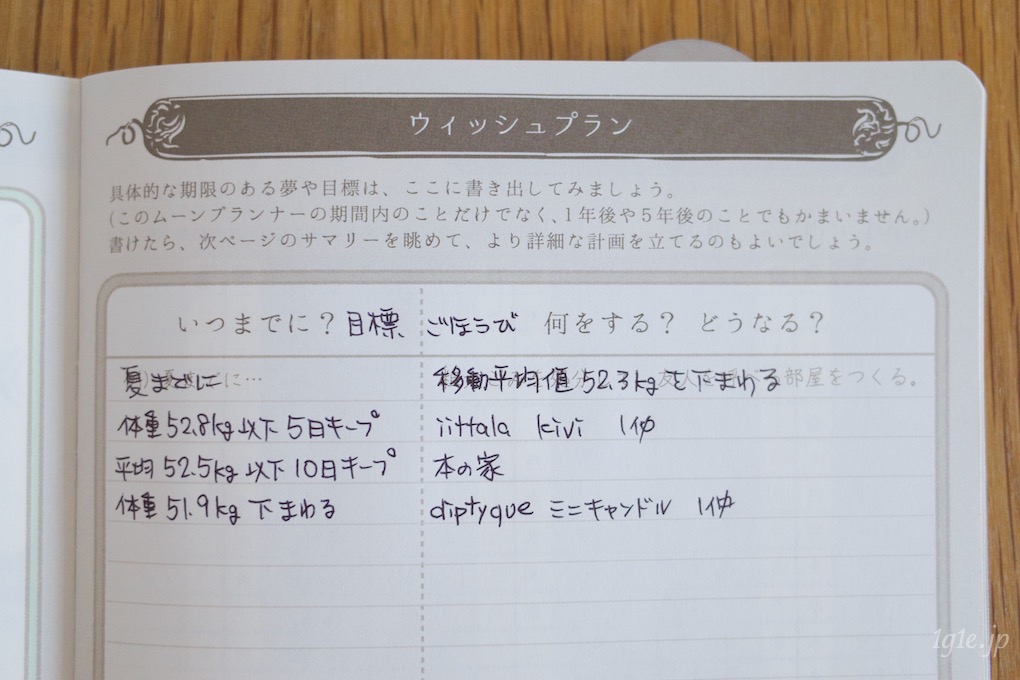 ウィッシュプラン
具体的な期限のある夢や目標は、ここに書き出してみましょう。
(このムーンプランナーの期間内のことだけでなく、1年後や5年後のことでもかまいません。)
書けたら、次ページのサマリーを眺めて、より詳細な計画を立てるのもよいでしょう。
いつまでに? 目標 ごほうび 何をする? どうなる?
夏までに に… 移動平均値 52.3kgを下まわる 部屋をつくる。
体重 52.8kg 以下 5日キープ iittala kivi 1個
平均 52.5kg 以下 10日キープ 本の家
体重 51.9kg 下まわる diptyque ミニキャンドル 1個
1g1e.jp